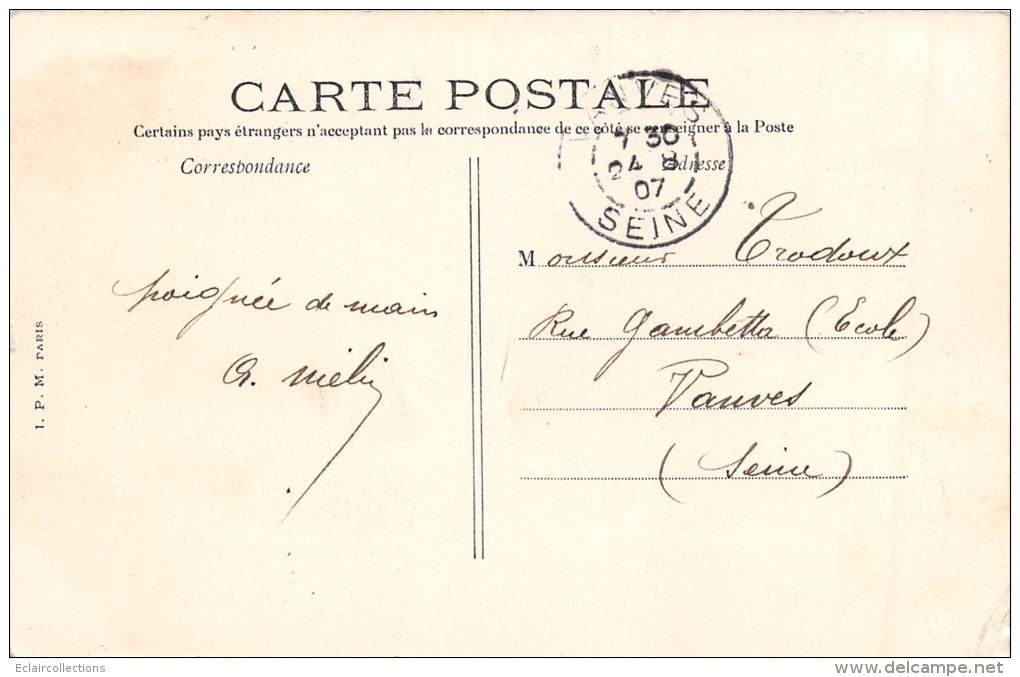 CARTE POSTALE
Certains pays étrangers n'acceptent pas la correspondance de ce côté se renseigner à la Poste
Correspondance
Adresse
VANVES
7 30
4 8
07
SEINE
poignée de main
Monsieur Trodoux
Rue Gambetta (Ecole)
Vanves
(Seine)
I. P. M. PARIS
Eclaircollections
www.delcampe.net